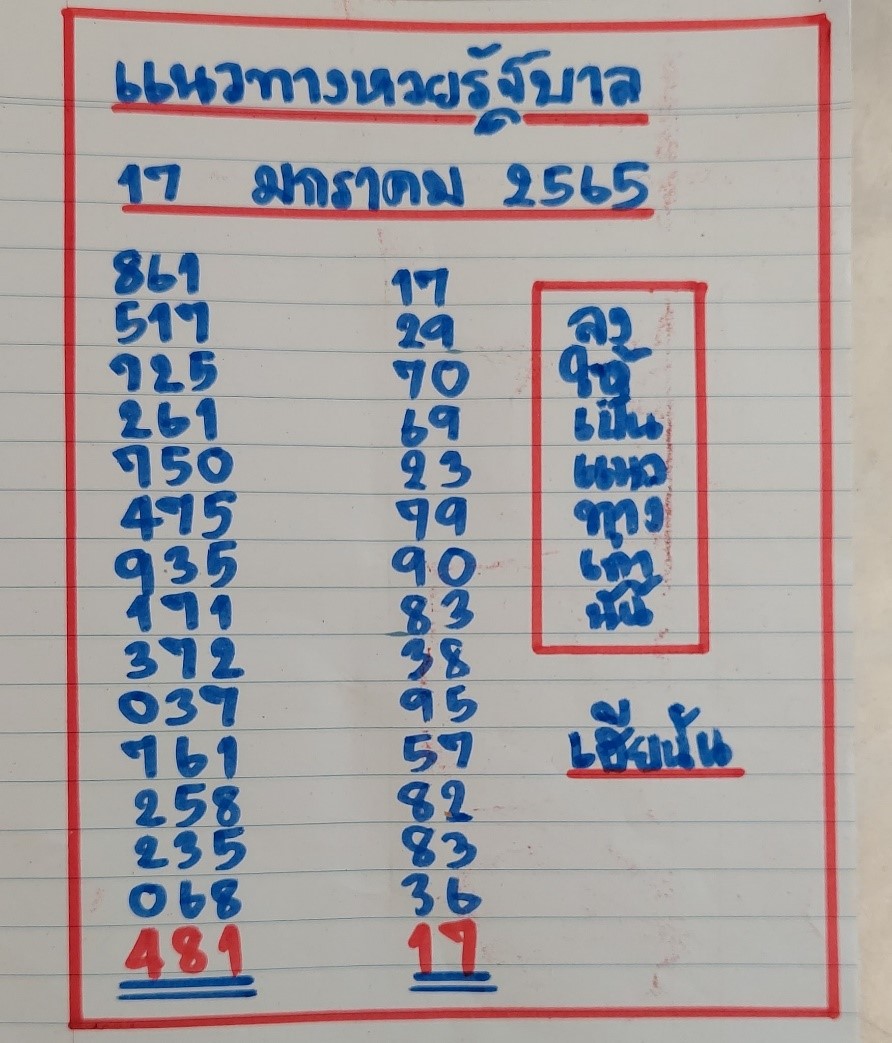 แนวทางหวยรัฐบาล
17 มกราคม 2565
861
517
725
261
750
475
935
171
372
037
761
258
235
068
481
17
29
70
69
23
79
90
83
38
95
57
82
83
36
17
ลง
ให้
เป็น
แนว
ทาง
เท่า
นั้น
เฮียนัน